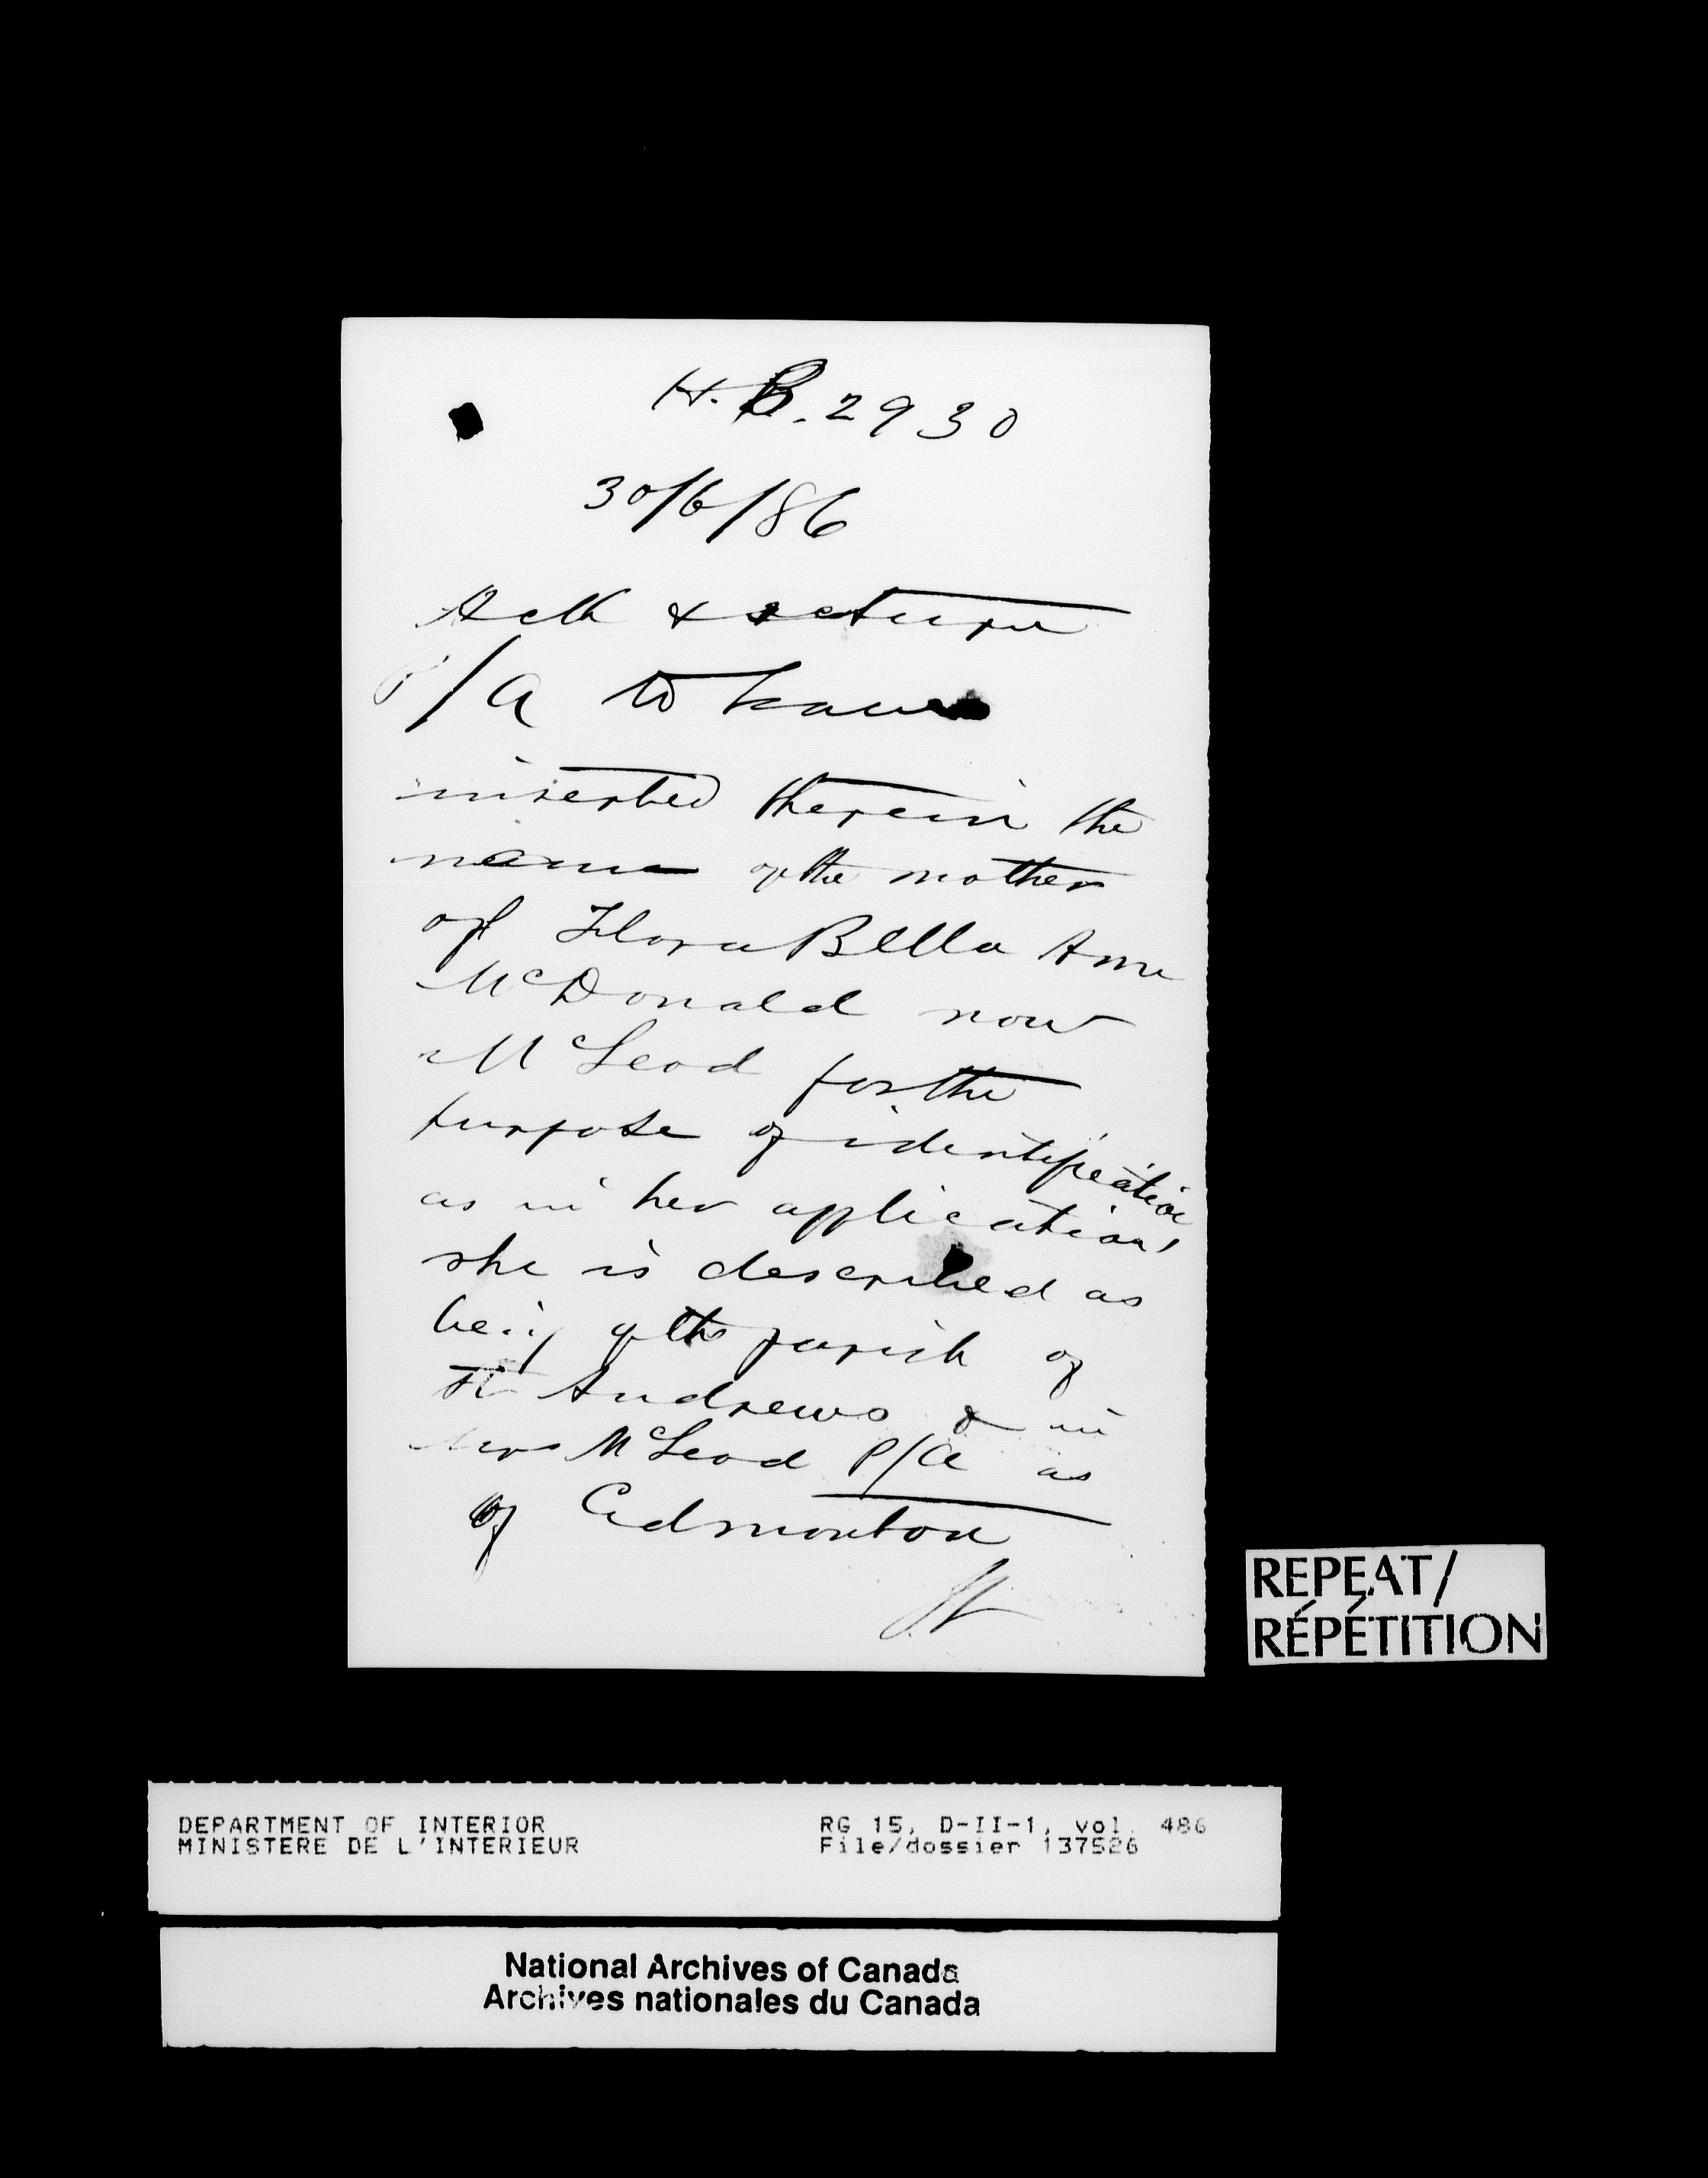 H.B. 2930
30/6/86
Ack & return
P/A to have
inserted therein the
name of the mother
of Flora Bella Ann
McDonald now
McLeod for the
purpose of identification
as in her application
she is described as
being of the parish of
St Andrews & in
Mrs McLeod P/A as
of Edmonton
REPEAT/
RÉPÉTITION
DEPARTMENT OF INTERIOR RG 15, D-II-1, vol. 486
MINISTERE DE L'INTERIEUR File/dossier 137526
National Archives of Canada
Archives nationales du Canada